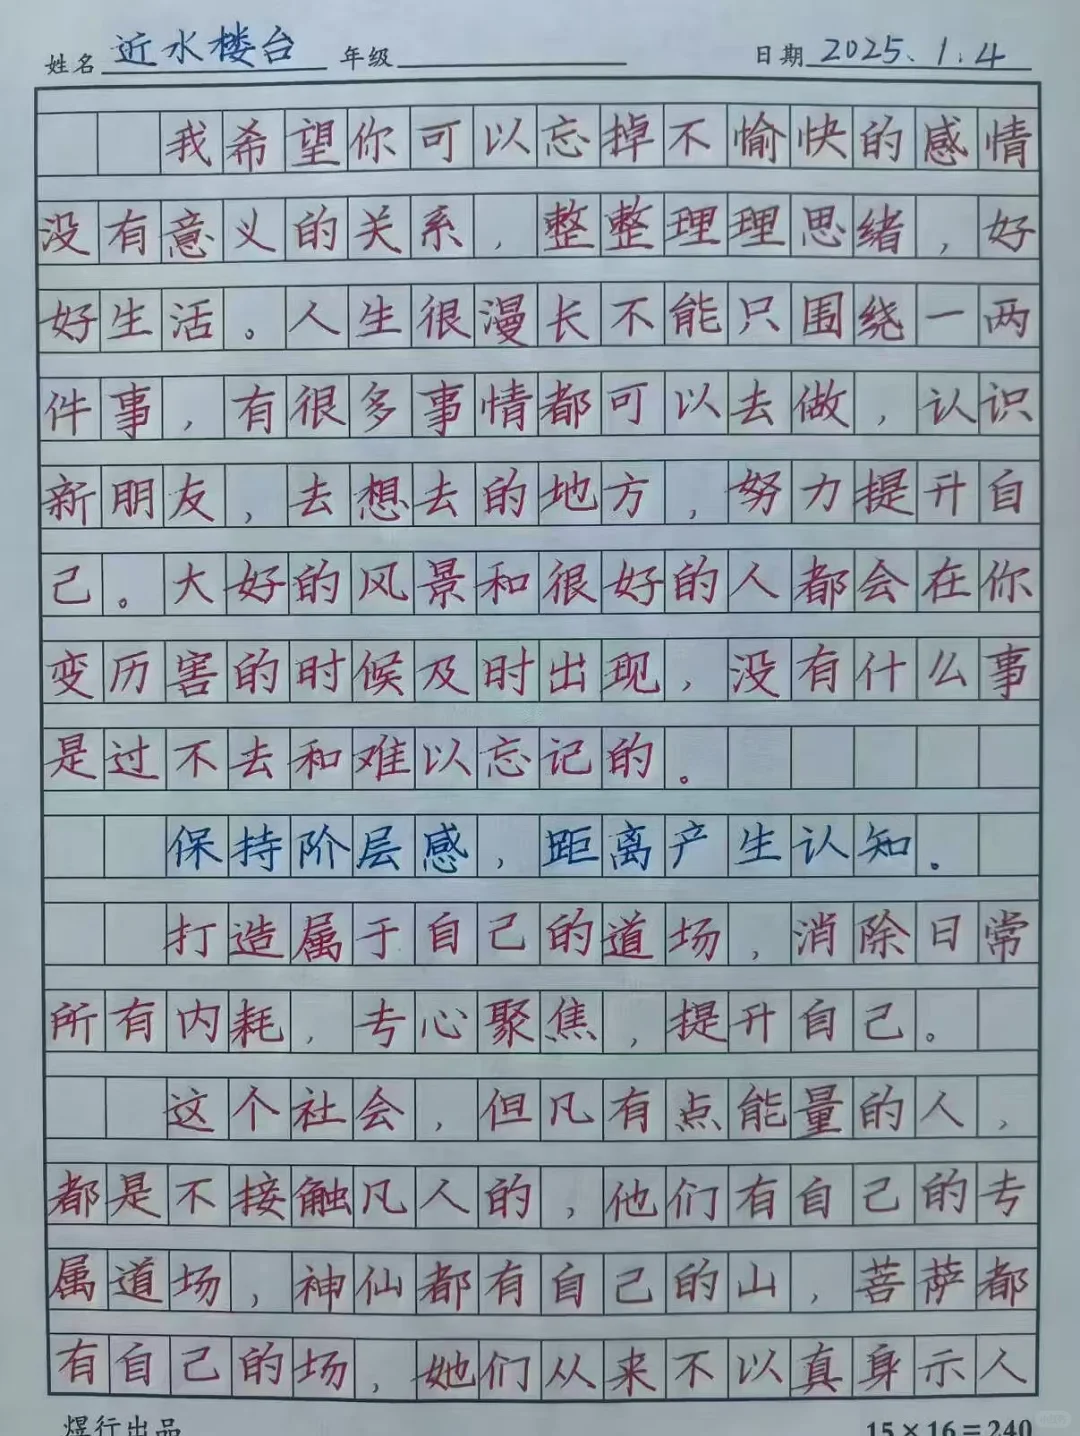 姓名 近水楼台 年级 日期 2025.1.4
我希望你可以忘掉不愉快的感情
没有意义的关系，整整理理思绪，好
好生活。人生很漫长不能只围绕一两
件事，有很多事情都可以去做，认识
新朋友，去想去的地方，努力提升自
己。大好的风景和很好的人都会在你
变历害的时候及时出现，没有什么事
是过不去和难以忘记的。
保持阶层感，距离产生认知。
打造属于自己的道场，消除日常
所有内耗，专心聚焦，提升自己。
这个社会，但凡有点能量的人，
都是不接触凡人的，他们有自己的专
属道场，神仙都有自己的山，菩萨都
有自己的场，她们从来不以真身示人
煜行出品 15×16=240